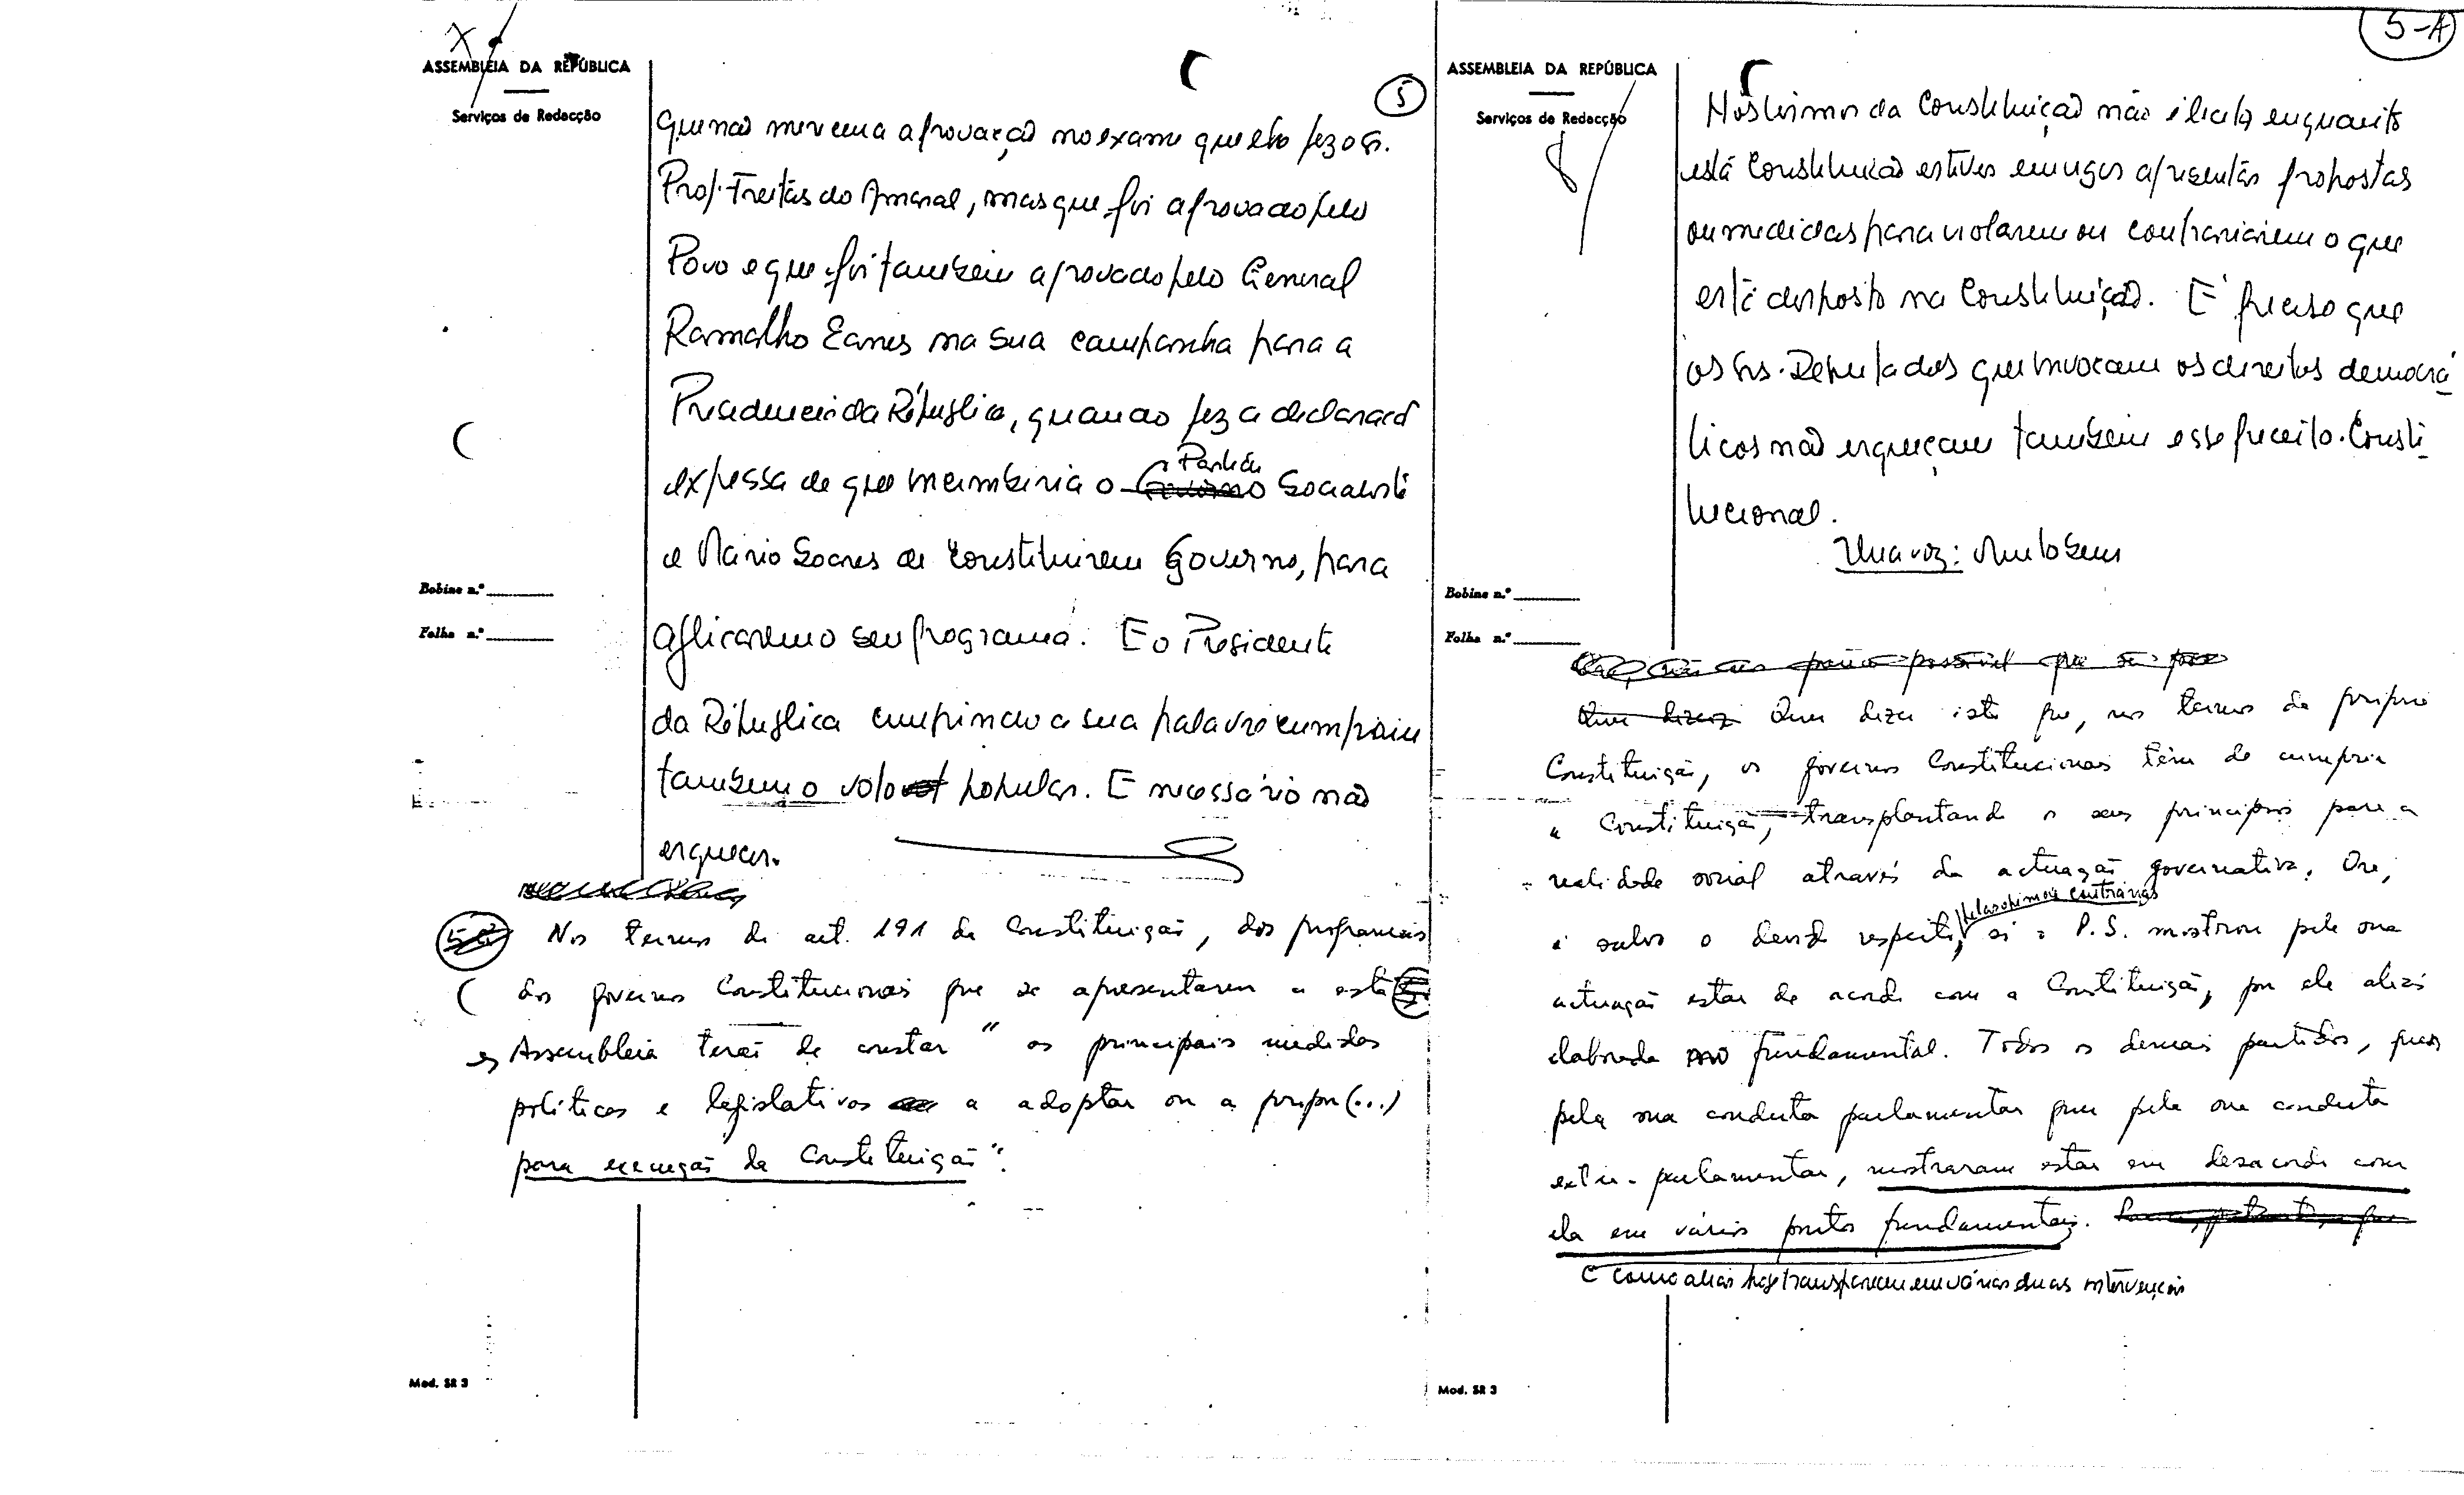 ASSEMBLEIA DA REPÚBLICA
Serviços de Redacção
5
que não merecera aprovação no exame que lhe fez o Sr.
Prof. Freitas do Amaral, mas que foi aprovado pelo
Povo e que foi também aprovado pelo General
Ramalho Eanes na sua campanha para a
Presidência da República, quando fez a declaração
expressa de que incumbiria o Governo Partido Socialista
e Mário Soares de constituirem Governo, para
aplicarem o seu programa. E o Presidente
da República cumprindo a sua palavra cumpriu
também o voto popular. É necessário não
esquecer.
Bobine n.º
Folha n.º
Nos termos do art. 191 da Constituição, dos programas
dos governos Constitucionais que se apresentarem a esta
Assembleia terão de constar "as principais medidas
políticas e legislativas a adoptar ou a propor (...)
para execução da Constituição".
Mod. SR 3
5-A
ASSEMBLEIA DA REPÚBLICA
Serviços de Redacção
8
Nos termos da Constituição não é lícito enquanto
esta Constituição estiver em vigor apresentar propostas
ou medidas para violarem ou contrariarem o que
está disposto na Constituição. É preciso que
os Srs. Deputados que invocam os direitos democrá-
ticos não esqueçam também esse preceito Consti-
tucional.
Uma voz: Muito bem
Bobine n.º
Folha n.º
Quer dizer Quer dizer isto que, nos termos da própria
Constituição, os governos Constitucionais têm de cumprir
a Constituição, transplantando os seus princípios para a
realidade social através da actuação governativa. Ora,
e salvo o devido respeito pelas opiniões contrárias, só o P.S. mostrou pela sua
actuação estar de acordo com a Constituição, por ele aliás
elaborada no fundamental. Todos os demais partidos, quer
pela sua conduta parlamentar quer pela sua conduta
extra-parlamentar, mostraram estar em desacordo com
ela em vários pontos fundamentais.
E como aliás hoje transparecem em várias duas intervenções
Mod. SR 3